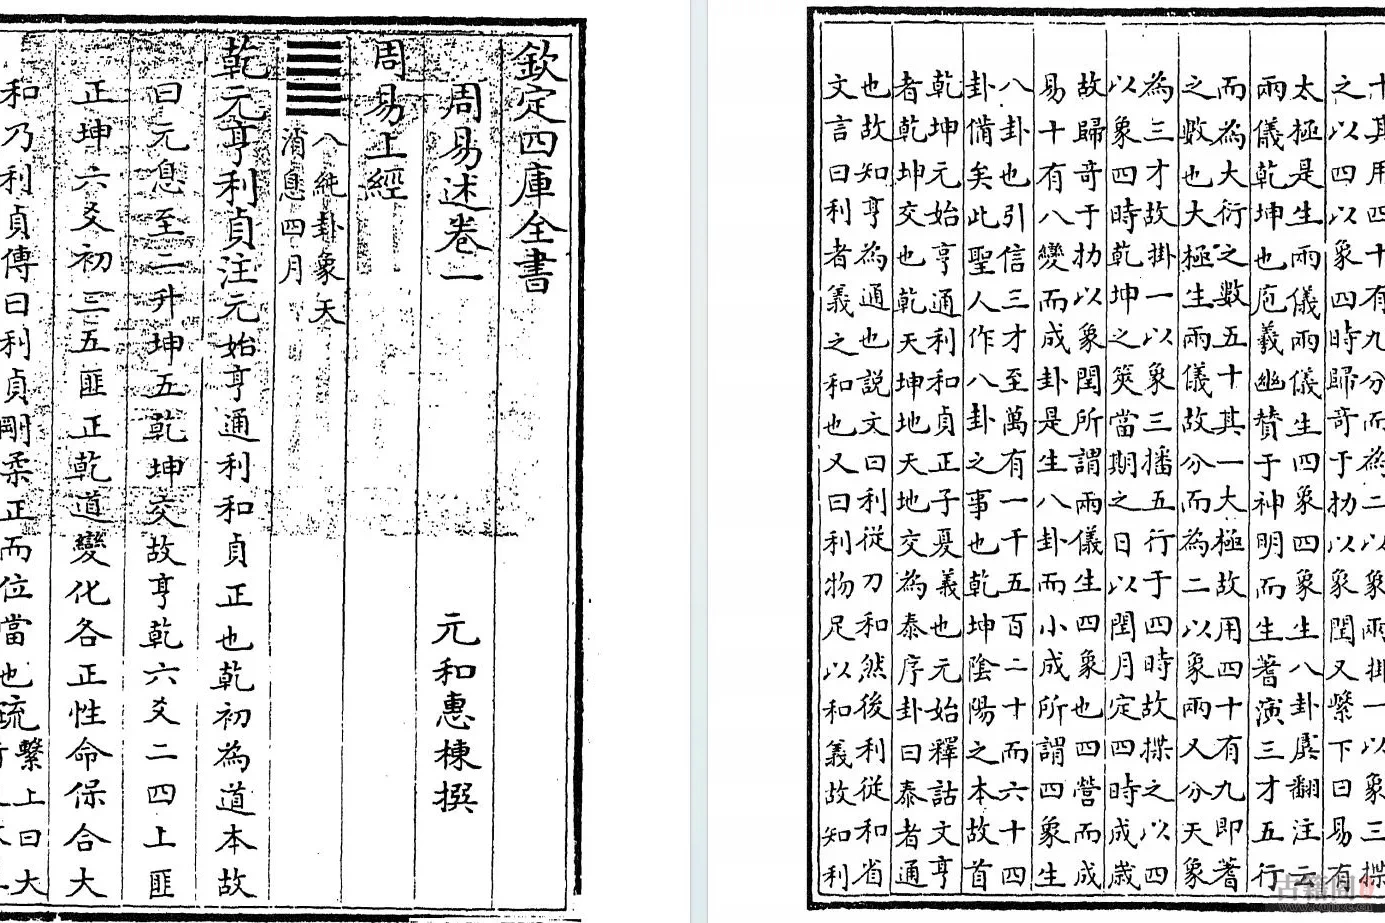 欽定四庫全書
周易述卷一
元和惠棟撰
周易上經
八純卦象天
消息四月
乾元亨利貞注元始亨通利和貞正也乾初為道本故
曰元息至二升坤五乾坤交故亨乾六爻二四上匪
正坤六爻初三五匪正乾道變化各正性命保合大
和乃利貞傳曰利貞剛柔正而位當也疏繫上曰大
十其用四十有九分而為二以象兩掛一以象三揲
之以四以象四時歸奇于扐以象閏又繫下曰易有
太極是生兩儀兩儀生四象四象生八卦虞翻注云
兩儀乾坤也庖羲幽贊于神明而生蓍演三才五行
而為大衍之數五十其一大極故用四十有九即蓍
之數也大極生兩儀故分而為二以象兩又分天象
為三才故掛一以象三播五行于四時故揲之以四
以象四時乾坤之筴當期之日以閏月定四時成歲
故歸奇于扐以象閏所謂兩儀生四象也四營而成
易十有八變而成卦是生八卦而小成所謂四象生
八卦也引信三才至萬有一千五百二十而六十四
卦備矣此聖人作八卦之事也乾坤陰陽之本故首
乾坤元始亨通利和貞正子夏義也元始釋詁文亨
者乾坤交也乾天坤地天地交為泰序卦曰泰者通
也故知亨為通也説文曰利從刀和然後利從和省
文言曰利者義之和也又曰利物足以和義故知利